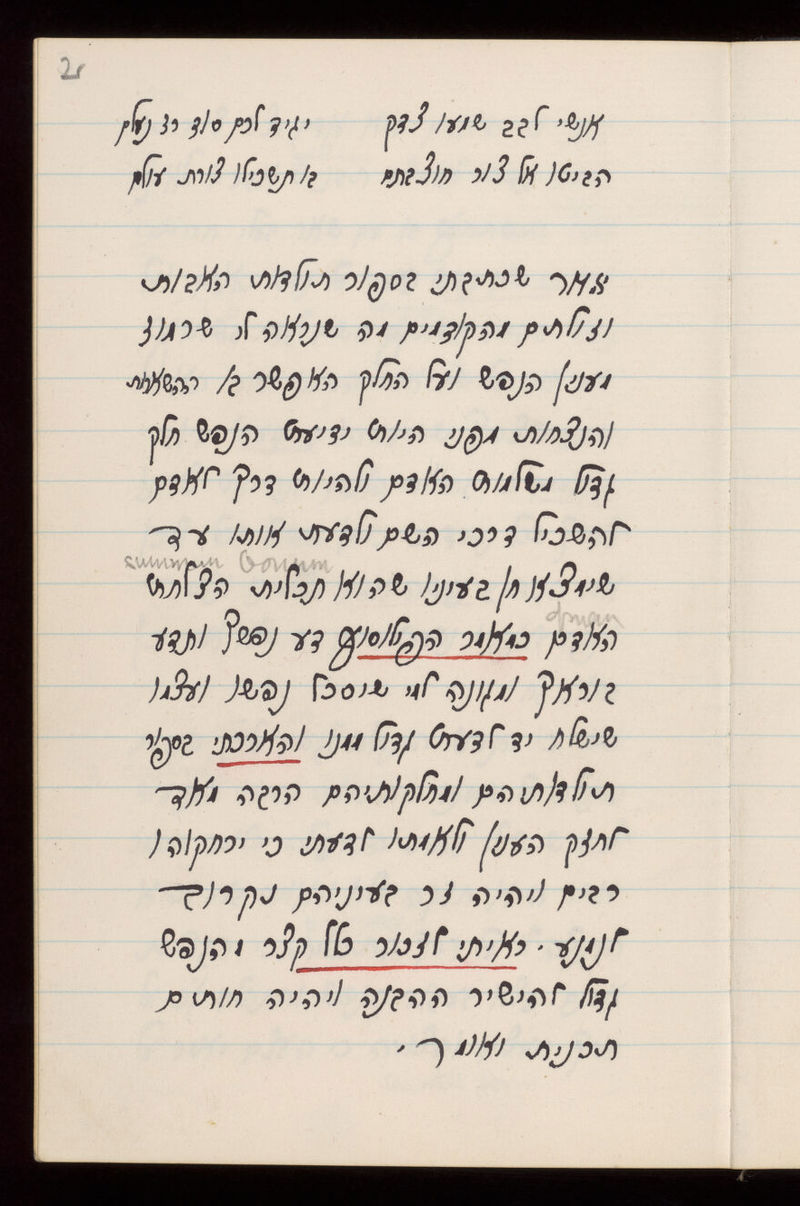 2r
אנשי לבב שמעו צדק יגיד לכם סוד רז נעלם
הביטו אל צור חוצבתם בו תשכילו צורת עולם
אמר שכתבתי בספור תולדות האבות
וזולתם מהקודמים מה שנראה לי שרמוז
מענין הנפש ועל החלק האפשר בו ההשארות
והנצחות מפני היות ידיעת הנפש חלק
גדול משלמות האדם ולהיות דרך לאדם
להשכיל דרכי השם ולדעת אותו עד
summum bonum
שימצאו חן בעיניו שהוא תכלית הצלחת
of man
האדם כמאמר הפילוסוף דע נפשך ותדע
בוראך ומגונה למי שיוסכל נפשו ועצמו
שישלח יד לדעת גדול ממנו והארכתי בספור
תולדותיהם ומחלקותיהם הרבה מאד
לחזק הענין ולאמתו לדעתי כי ירחקוהו
רבים ויהיה זר בעיניהם מקרוב
לנמנע. ראיתי לזכור כלל קצר מהנפש
גדול להישיר ההבנה ויהיה חותם
תכנית ואומר.